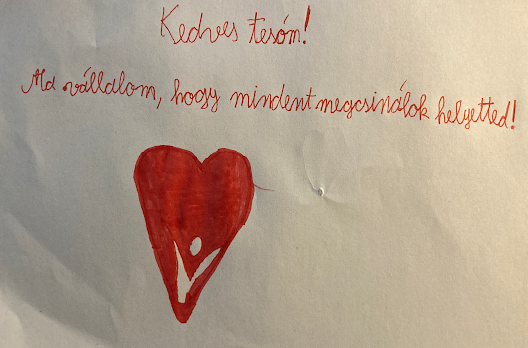 Kedves tesóm!
Ma vállalom, hogy mindent megcsinálok helyetted!